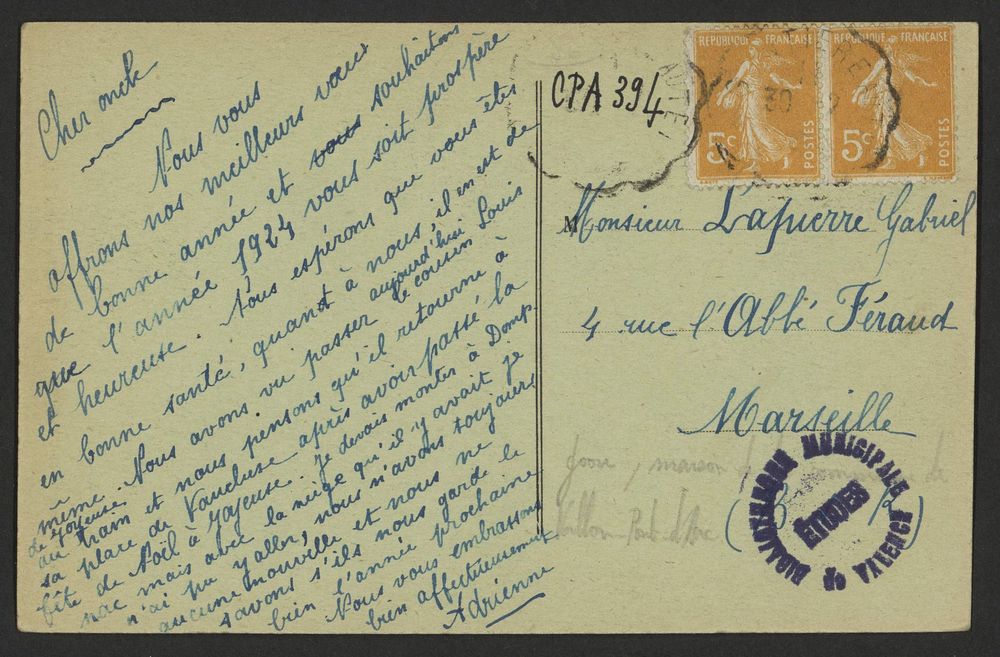 Cher oncle
Nous vous
affrons nos meilleurs vœux
de bonne année et vous souhaitons
que l'année 1924 vous soit prospère
et heureuse. Nous espérons que vous êtes
en bonne santé, quant à nous, il en est de
même. Nous avons vu passer aujourd'hui
de Joyeuse le cousin Louis
au train et nous pensons qu'il retourne à
sa place de Vaucluse après avoir passé la
fête de Noël à Joyeuse. Je devais monter à Domp-
nac mais avec la neige qu'il y avait je
n'ai pu y aller, nous n'avons toujours
aucune nouvelle et nous ne
savons s'ils nous garde le
bien l'année prochaine
Nous vous embrassons
bien affectueusement
Adrienne
CPA 394
REPUBLIQUE FRANÇAISE
5c
POSTES
REPUBLIQUE FRANÇAISE
5c
POSTES
30
Monsieur Lapierre Gabriel
4 rue l'Abbé Féraud
Marseille
(B R)
maison
de
Vallon Pont d'Arc
BIBLIOTHEQUE MUNICIPALE
ÉTUDES
DE VALENCE